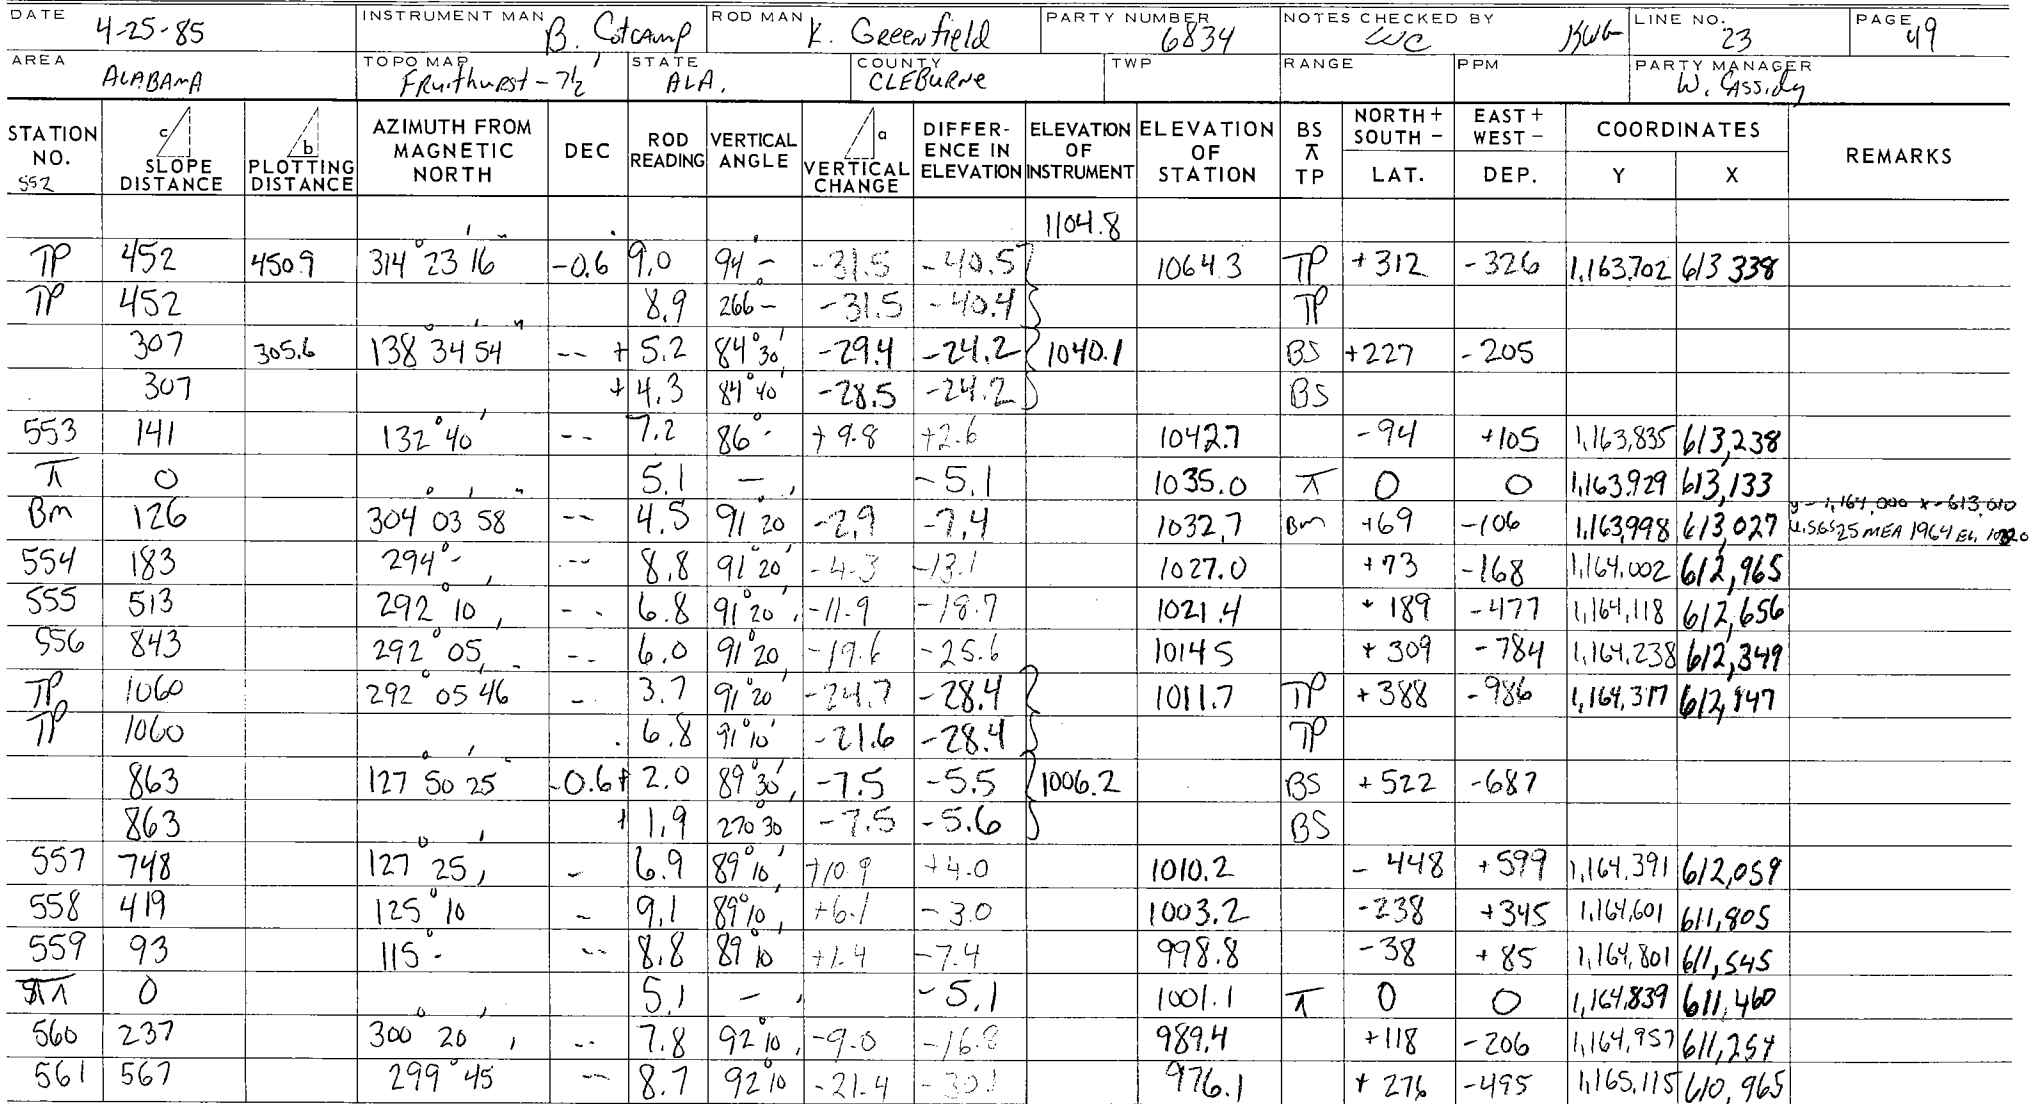 DATE 4-25-85 INSTRUMENT MAN B. Cotcamp ROD MAN K. Greenfield PARTY NUMBER 6834 NOTES CHECKED BY WC KWG LINE NO. 23 PAGE 49
AREA ALABAMA TOPO MAP Fruithurst - 7½' STATE ALA. COUNTY CLEBURNE TWP RANGE PPM PARTY MANAGER W. Cassidy
STATION NO. 552 c SLOPE DISTANCE b PLOTTING DISTANCE AZIMUTH FROM MAGNETIC NORTH DEC ROD READING VERTICAL ANGLE a VERTICAL CHANGE DIFFERENCE IN ELEVATION ELEVATION OF INSTRUMENT ELEVATION OF STATION BS ⊼ TP NORTH + SOUTH - LAT. EAST + WEST - DEP. COORDINATES Y X REMARKS
1104.8
TP 452 450.9 314° 23' 16" -0.6 9.0 94° - -31.5 -40.5 1064.3 TP +312 -326 1,163,702 613 338
TP 452 8.9 266° - -31.5 -40.4 TP
307 305.6 138° 34' 54" -- +5.2 84° 30' -29.4 -24.2 1040.1 BS +227 -205
307 +4.3 84° 40' -28.5 -24.2 BS
553 141 132° 40' -- 7.2 86° - +9.8 +2.6 1042.7 -94 +105 1,163,835 613,238
⊼ 0 5.1 - -5.1 1035.0 ⊼ 0 0 1,163,929 613,133
Bm 126 304° 03' 58" -- 4.5 91° 20' -2.9 -7.4 1032.7 Bm +69 -106 1,163,998 613,027 y - 1,164,000 x - 613,010 U.S.G.S 25 MEA 1964 EL.
554 183 294° - -- 8.8 91° 20' -4.3 -13.1 1027.0 +73 -168 1,164,002 612,965
555 513 292° 10' -- 6.8 91° 20' -11.9 -18.7 1021.4 +189 -477 1,164,118 612,656
556 843 292° 05' -- 6.0 91° 20' -19.6 -25.6 1014.5 +309 -784 1,164,238 612,349
TP 1060 292° 05' 46" - 3.7 91° 20' -24.7 -28.4 1011.7 TP +388 -986 1,164,317 612,147
TP 1060 6.8 91° 10' -21.6 -28.4 TP
863 127° 50' 25" -0.6 +2.0 89° 30' -7.5 -5.5 1006.2 BS +522 -687
863 +1.9 270° 30' -7.5 -5.6 BS
557 748 127° 25' - 6.9 89° 10' +10.9 +4.0 1010.2 -448 +599 1,164,391 612,059
558 419 125° 10' - 9.1 89° 10' +6.1 -3.0 1003.2 -238 +345 1,164,601 611,805
559 93 115° - -- 8.8 89° 10' +1.4 -7.4 998.8 -38 +85 1,164,801 611,545
⊼ 0 5.1 - -5.1 1001.1 ⊼ 0 0 1,164,839 611,460
560 237 300° 20' -- 7.8 92° 10' -9.0 -16.8 989.4 +118 -206 1,164,957 611,254
561 567 299° 45' -- 8.7 92° 10' -21.4 -30.1 976.1 +276 -495 1,165,115 610,965